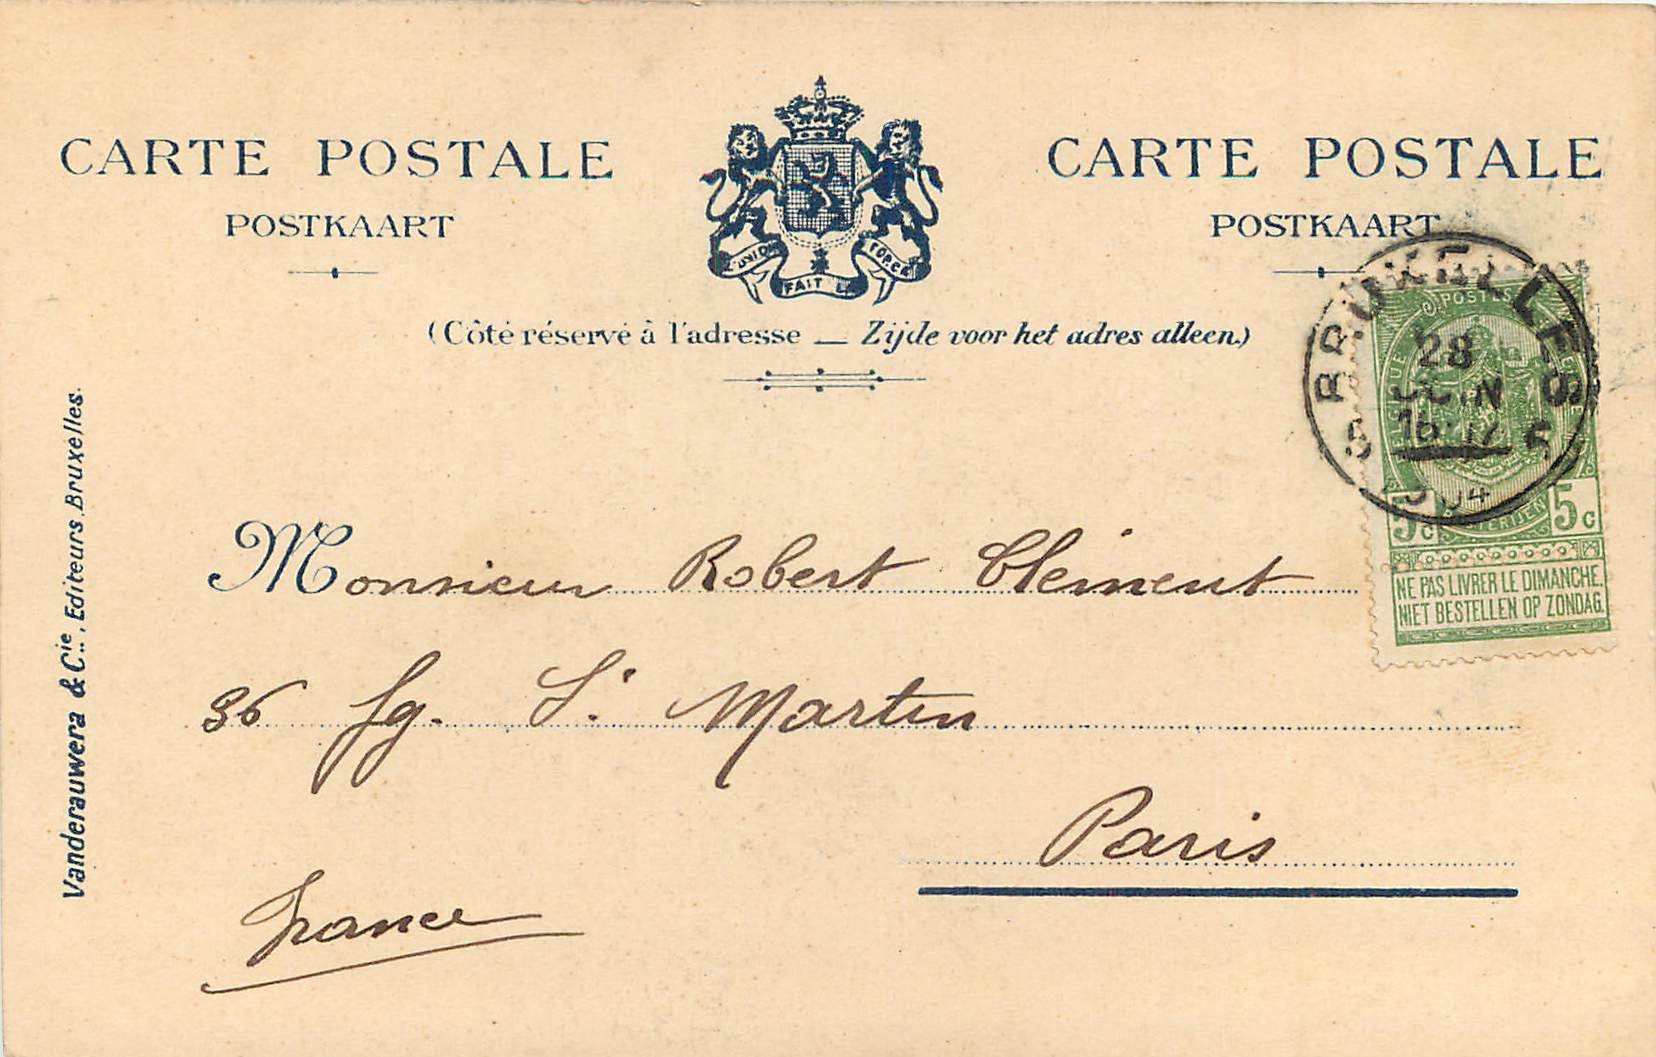 CARTE POSTALE
POSTKAART
L'UNION FAIT LA FORCE
CARTE POSTALE
POSTKAART
(Côté réservé à l'adresse — Zijde voor het adres alleen.)
BRUXELLES
28
JUIN
5 5
POSTES
5c 5c
NE PAS LIVRER LE DIMANCHE.
NIET BESTELLEN OP ZONDAG.
Monsieur Robert Clément
36 fg. St Martin
Paris
France
Vanderauwera & Cie., Editeurs, Bruxelles.